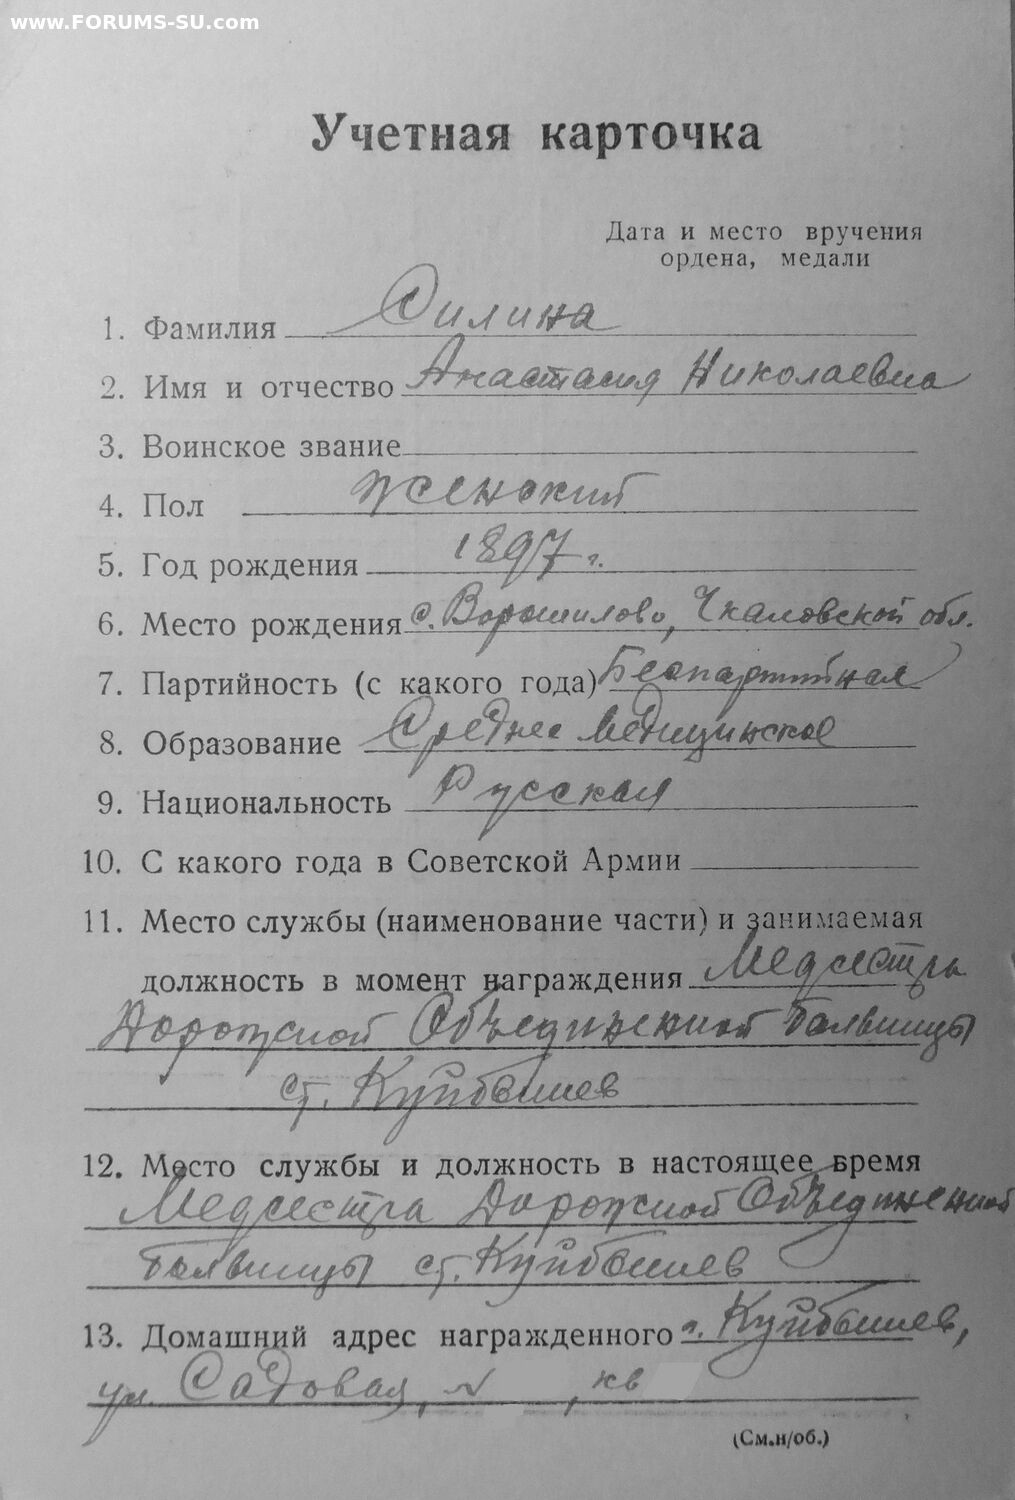 www.FORUMS-SU.com
Учетная карточка
Дата и место вручения
ордена, медали
1. Фамилия Силина
2. Имя и отчество Анастасия Николаевна
3. Воинское звание
4. Пол женский
5. Год рождения 1897 г.
6. Место рождения с. Ворошилово, Чкаловской обл.
7. Партийность (с какого года) Беспартийная
8. Образование Среднее медицинское
9. Национальность Русская
10. С какого года в Советской Армии
11. Место службы (наименование части) и занимаемая
должность в момент награждения Медсестра
Дорожной Объединенной больницы
ст. Куйбышев
12. Место службы и должность в настоящее время
Медсестра Дорожной Объединенной
больницы ст. Куйбышев
13. Домашний адрес награжденного г. Куйбышев,
ул. Садовая, N , кв
(См.н/об.)